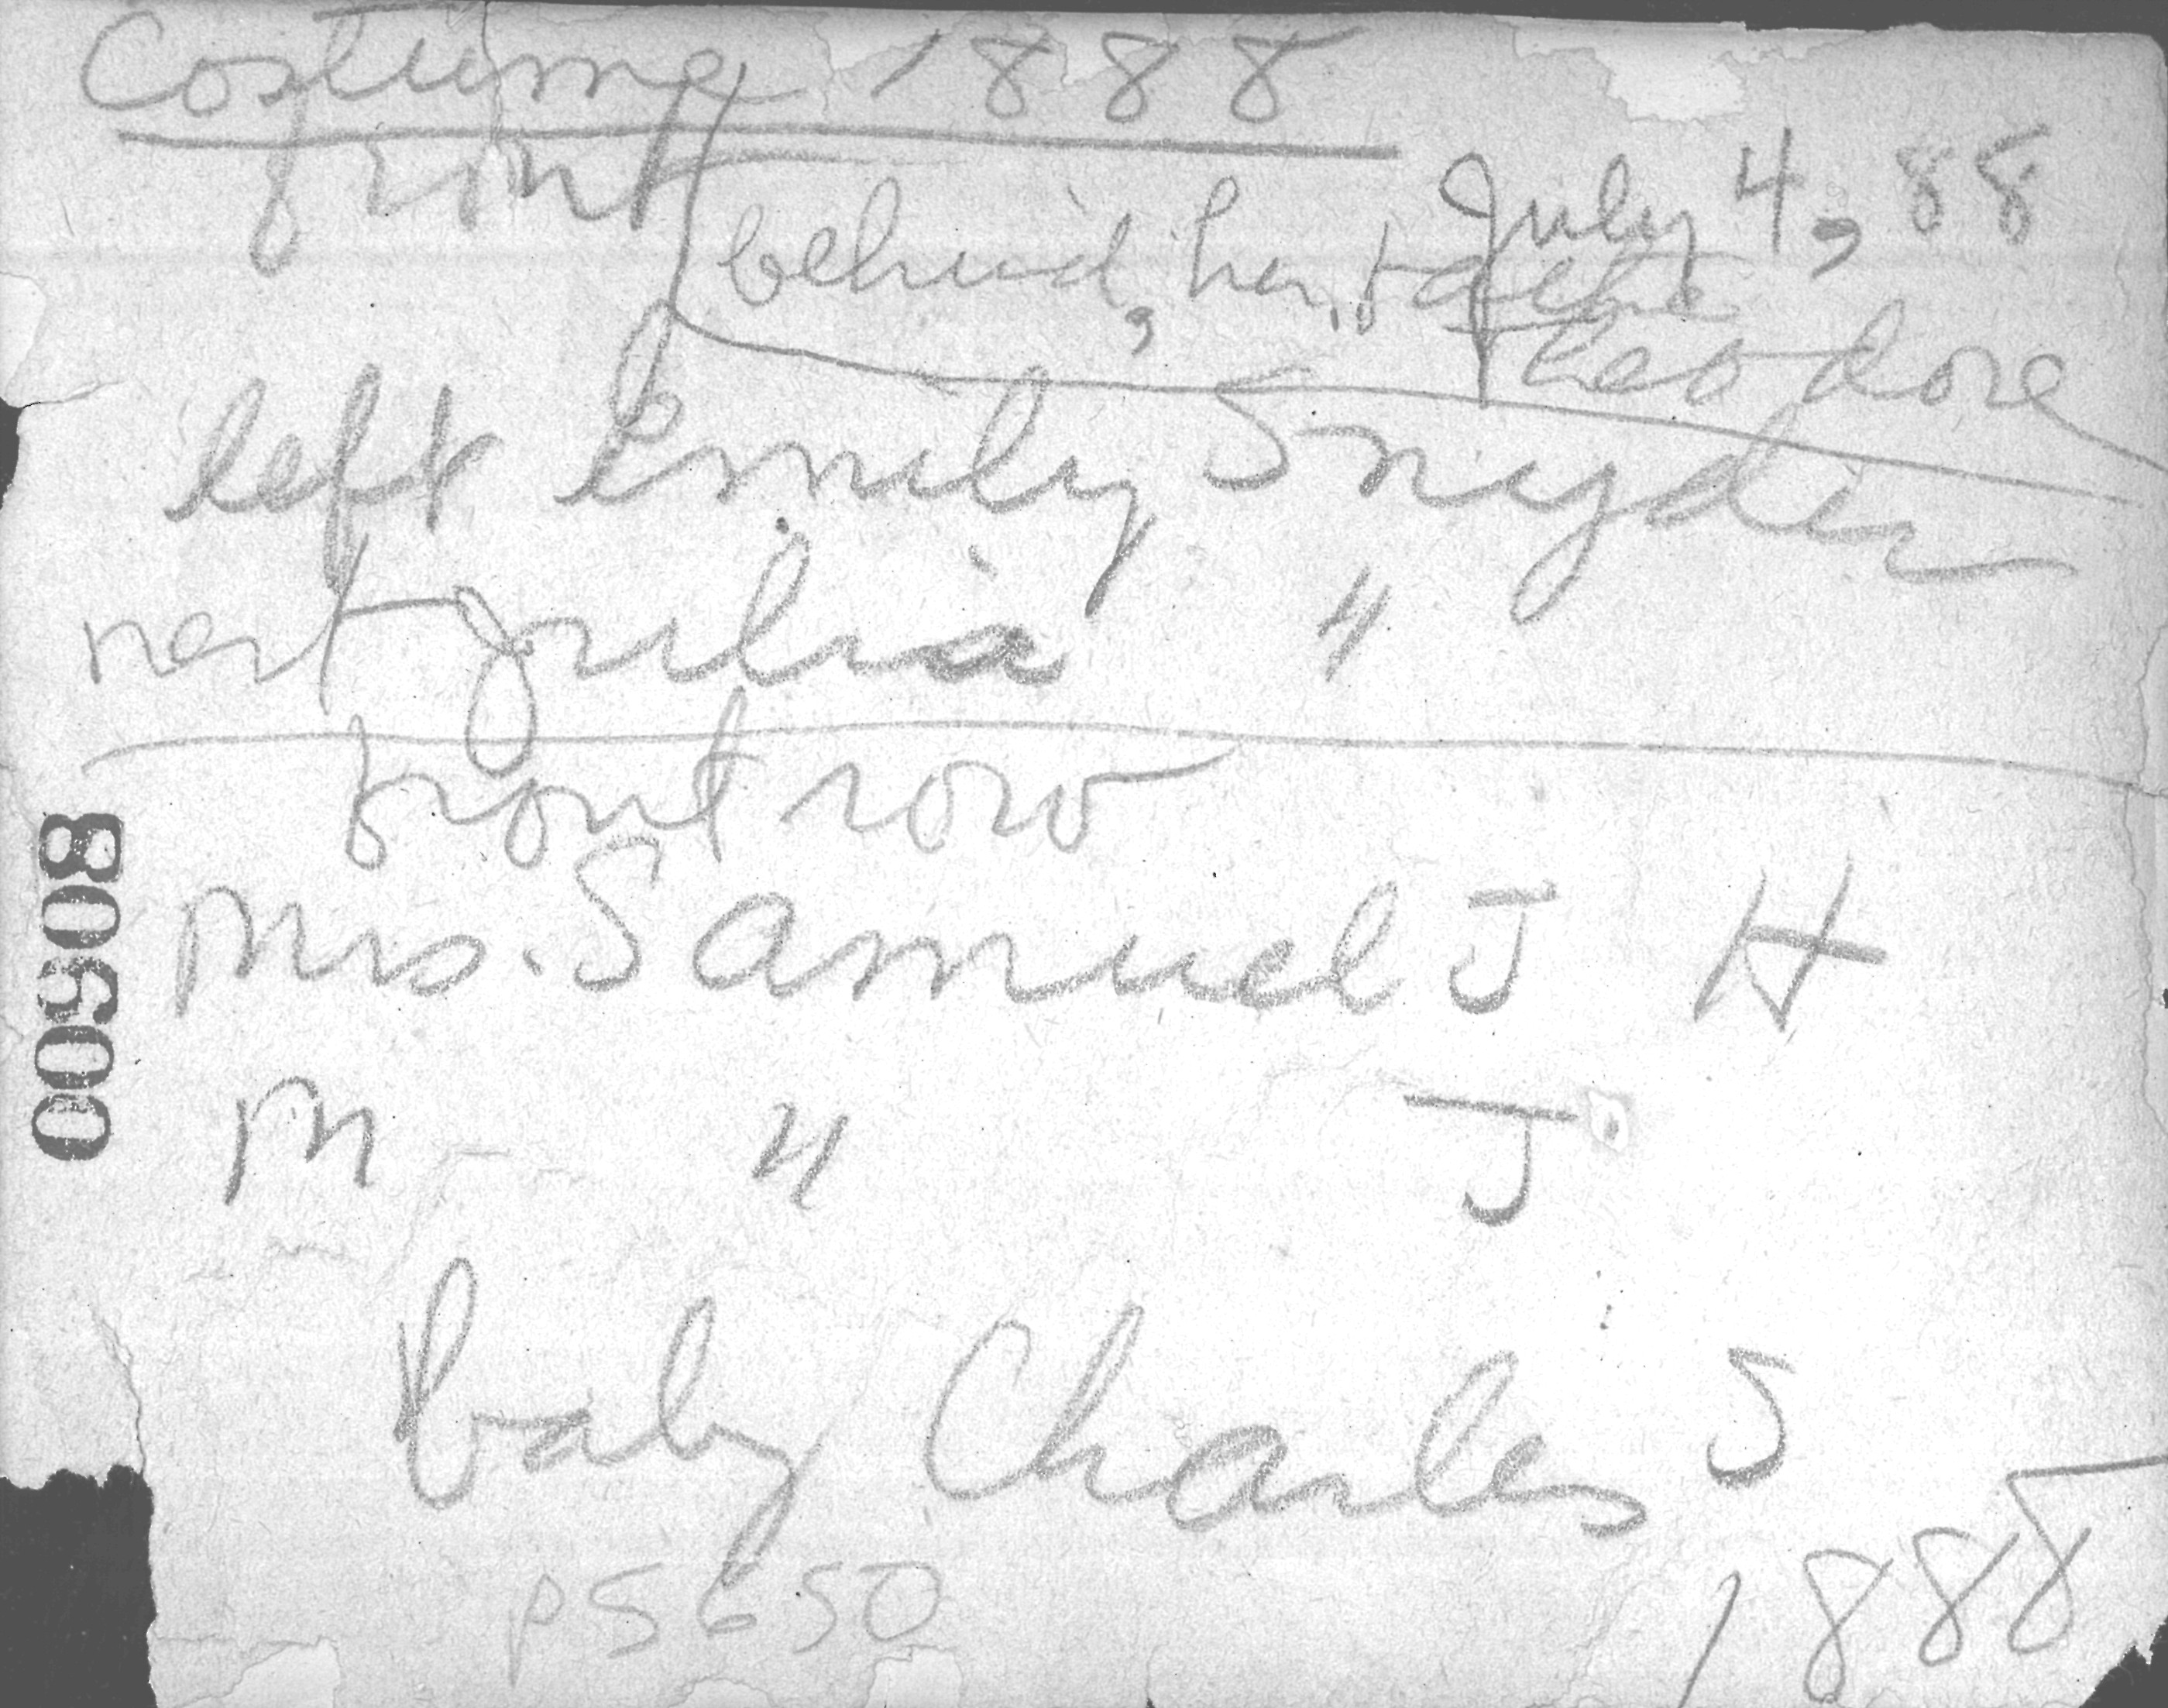 Costume 1888
front
July 4, 88
behind, her
Theodore
left Emily Snyder
next Julia "
front row
Mrs. Samuel J H
M " J.
baby Charles S
1888
P5650
00508